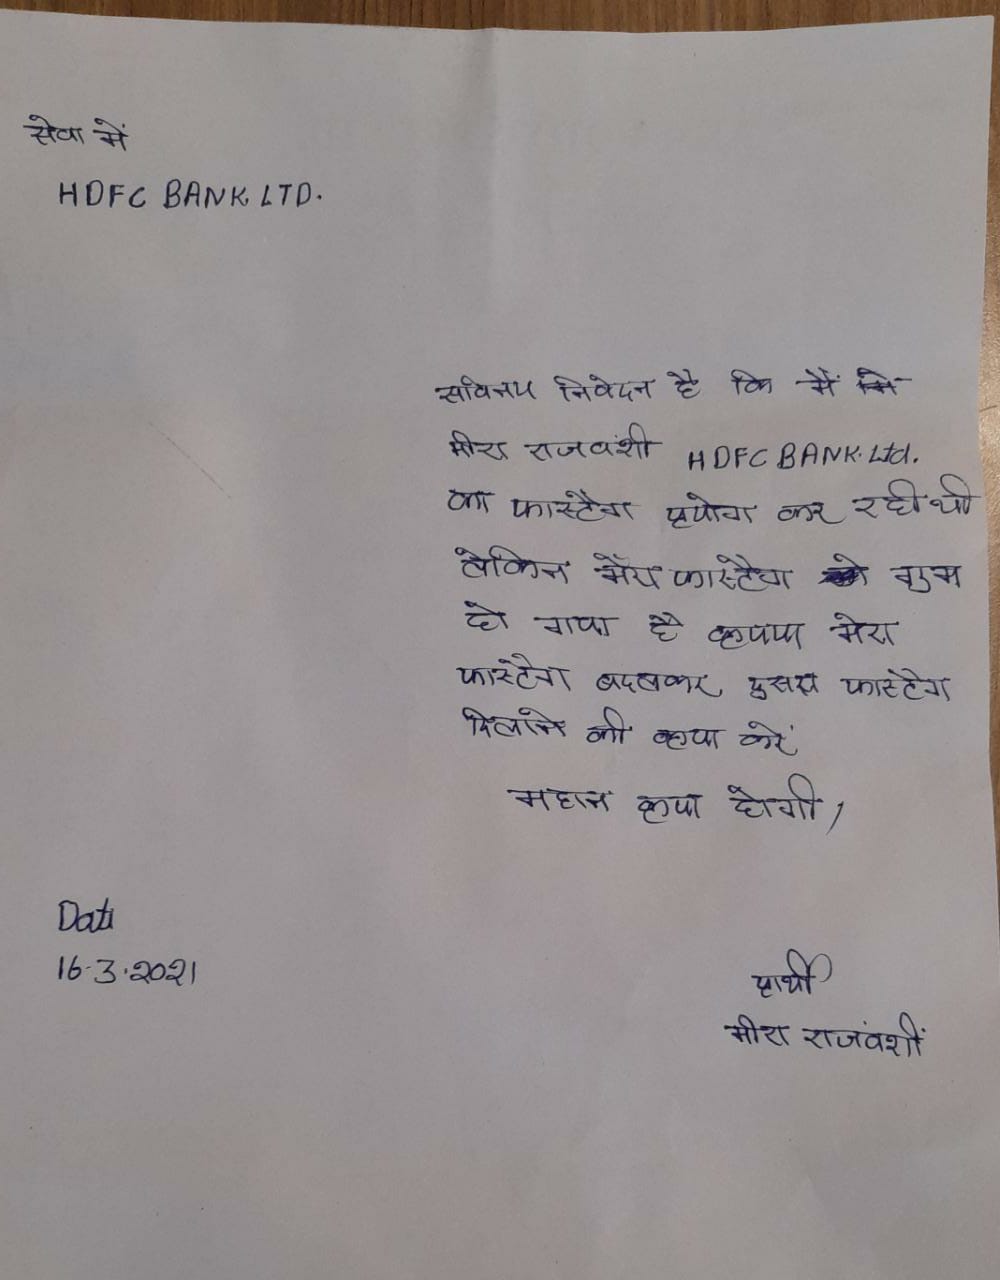 सेवा में
HDFC BANK LTD.
सविनय निवेदन है कि मैं
मीरा राजवंशी HDFC BANK. Ltd.
का फास्टैग प्रयोग कर रही थी
लेकिन मेरा फास्टैग गुम
हो गया है कृपया मेरा
फास्टैग बदलकर दुसरा फास्टैग
दिलाने की कृपा करें
महान कृपा होगी,
Date
16-3-2021
प्रार्थी
मीरा राजवंशी